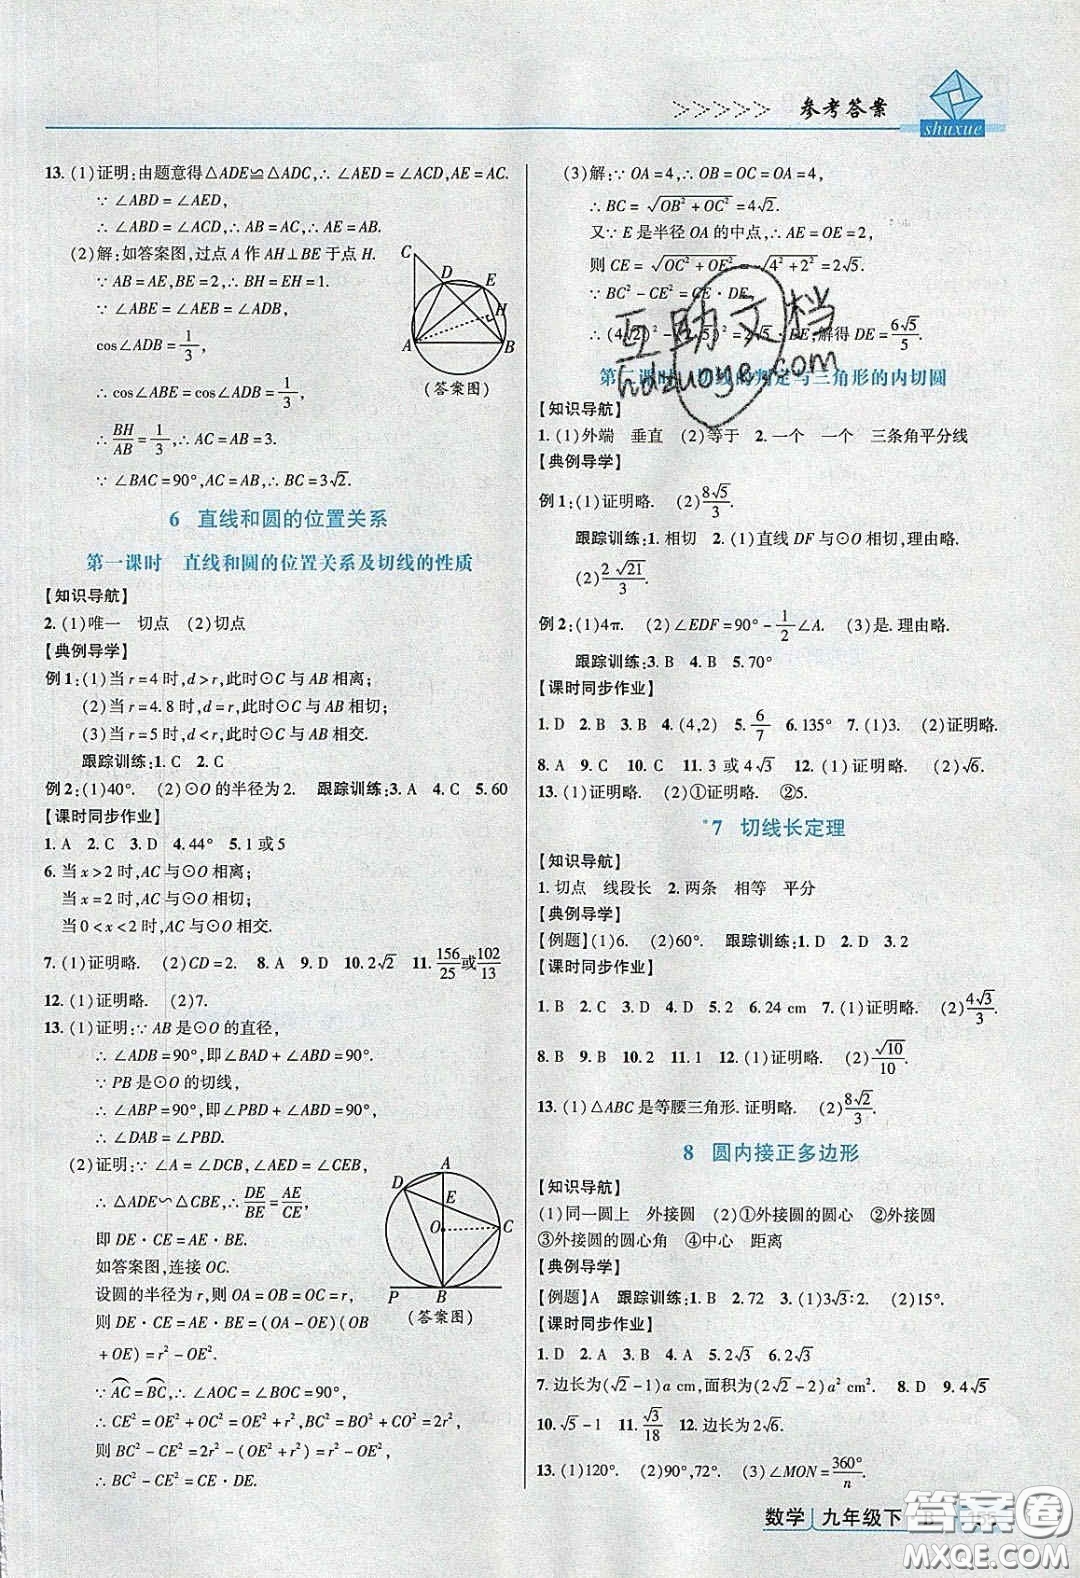 >>>>> 参考答案
shuxue
13. (1)证明:由题意得△ADE≌△ADC,∴∠AED=∠ACD,AE=AC.
∵∠ABD=∠AED,
∴∠ABD=∠ACD,∴AB=AC,∴AE=AB.
(2)解:如答案图,过点A作AH⊥BE于点H.
∵AB=AE,BE=2,∴BH=EH=1.
∵∠ABE=∠AEB=∠ADB,
cos∠ADB=1/3,
∴cos∠ABE=cos∠ADB=1/3,
∴BH/AB=1/3,∴AC=AB=3.
∵∠BAC=90°,AC=AB,∴BC=3√2.
C
D
E
H
A
B
(答案图)
6 直线和圆的位置关系
第一课时 直线和圆的位置关系及切线的性质
【知识导航】
2. (1)唯一 切点 (2)切点
【典例导学】
例1:(1)当r=4时,d>r,此时⊙C与AB相离;
(2)当r=4.8时,d=r,此时⊙C与AB相切;
(3)当r=5时,d<r,此时⊙C与AB相交.
跟踪训练:1. C 2. C
例2:(1)40°. (2)⊙O的半径为2. 跟踪训练:3. A 4. C 5. 60
【课时同步作业】
1. A 2. C 3. D 4. 44° 5. 1或5
6. 当x>2时,AC与⊙O相离;
当x=2时,AC与⊙O相切;
当0<x<2时,AC与⊙O相交.
7. (1)证明略. (2)CD=2. 8. A 9. D 10. 2√2 11. 156/25或102/13
12. (1)证明略. (2)7.
13. (1)证明:∵AB是⊙O的直径,
∴∠ADB=90°,即∠BAD+∠ABD=90°.
∵PB是⊙O的切线,
∴∠ABP=90°,即∠PBD+∠ABD=90°,
∴∠DAB=∠PBD.
(2)证明:∵∠A=∠DCB,∠AED=∠CEB,
∴△ADE∽△CBE,∴DE/BE=AE/CE,
即DE·CE=AE·BE.
如答案图,连接OC.
设圆的半径为r,则OA=OB=OC=r,
则DE·CE=AE·BE=(OA-OE)(OB
+OE)=r²-OE².
∵AC=BC,∴∠AOC=∠BOC=90°,
∴CE²=OE²+OC²=OE²+r²,BC²=BO²+CO²=2r²,
则BC²-CE²=2r²-(OE²+r²)=r²-OE²,
∴BC²-CE²=CE·DE.
A
D
E
O
C
P
B
(答案图)
(3)解:∵OA=4,∴OB=OC=OA=4,
∴BC=√(OB²+OC²)=4√2.
又∵E是半径OA的中点,∴AE=OE=2,
则CE=√(OC²+OE²)=√(4²+2²)=2√5.
∵BC²-CE²=CE·DE,
∴(4√2)²-(2√5)²=2√5·DE,解得DE=6√5/5.
互助文档
hdzuoye.com
第二课时 切线的判定与三角形的内切圆
【知识导航】
1. (1)外端 垂直 (2)等于 2. 一个 一个 三条角平分线
【典例导学】
例1:(1)证明略. (2)8√5/3.
跟踪训练:1. 相切 2. (1)直线DF与⊙O相切,理由略.
(2)2√21/3.
例2:(1)4π. (2)∠EDF=90°-1/2∠A. (3)是.理由略.
跟踪训练:3. B 4. B 5. 70°
【课时同步作业】
1. D 2. B 3. B 4. (4,2) 5. 6/7 6. 135° 7. (1)3. (2)证明略.
8. A 9. C 10. C 11. 3或4√3 12. (1)证明略. (2)√6.
13. (1)证明略. (2)①证明略. ②5.
*7 切线长定理
【知识导航】
1. 切点 线段长 2. 两条 相等 平分
【典例导学】
【例题】(1)6. (2)60°. 跟踪训练:1. D 2. D 3. 2
【课时同步作业】
1. B 2. C 3. D 4. D 5. 2 6. 24 cm 7. (1)证明略. (2)4√3/3.
8. B 9. B 10. 6 11. 4 12. (1)证明略. (2)√10/10.
13. (1)△ABC是等腰三角形.证明略. (2)8√2/3.
8 圆内接正多边形
【知识导航】
(1)同一圆上 外接圆 (2)①外接圆的圆心 ②外接圆
③外接圆的圆心角 ④中心 距离
【典例导学】
【例题】A 跟踪训练:1. B 2. 72 3. (1)3√3:2. (2)15°.
【课时同步作业】
1. D 2. B 3. A 4. B 5. 2√3 6. 2√3
7. 边长为(√2-1)a cm,面积为(2√2-2)a² cm². 8. D 9. 4√5
10. √5-1 11. √3/18 12. 边长为2√6.
13. (1)120°. (2)90°,72°. (3)∠MON=360°/n.
数学 九年级下 B
答案圈
MXQE.COM